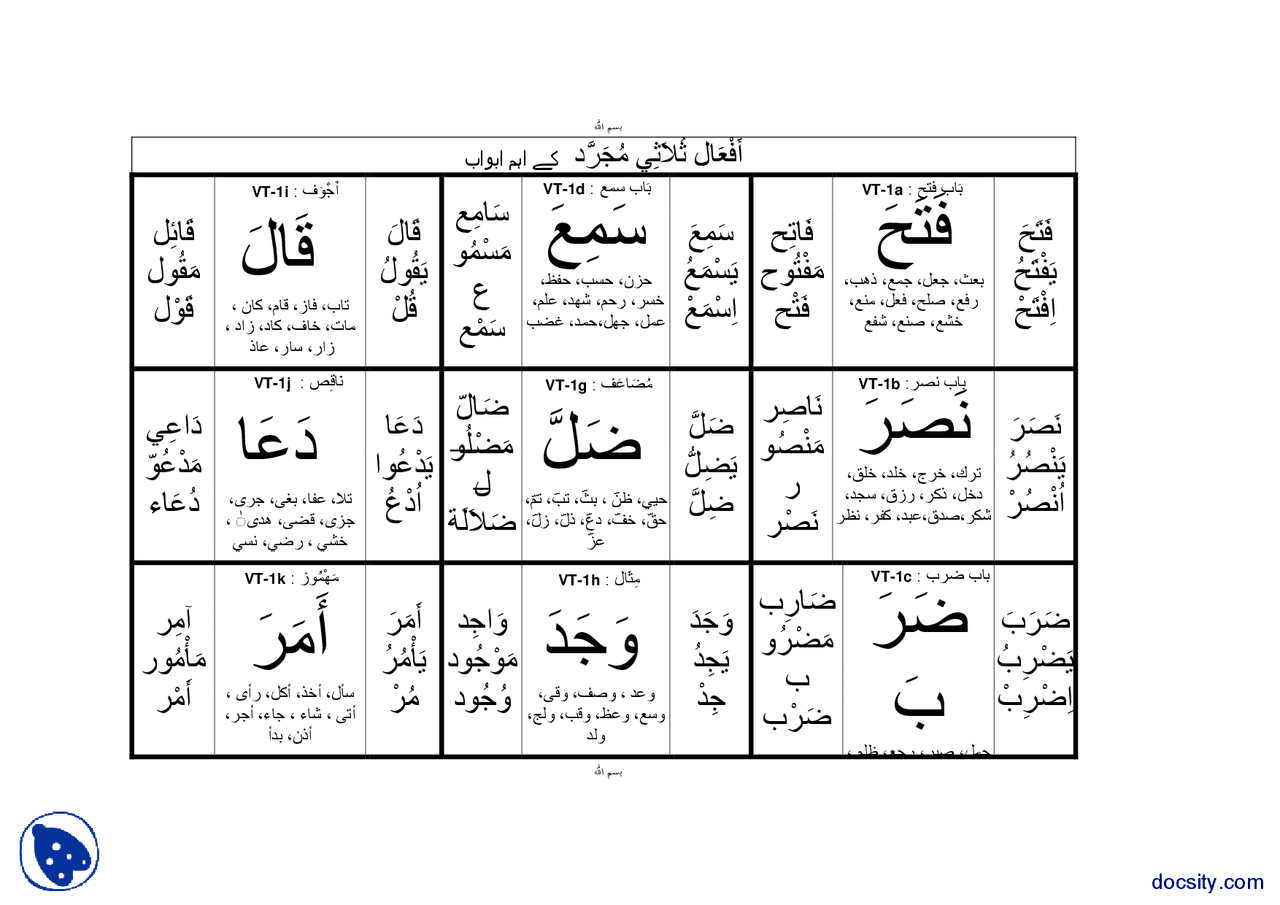 بسم الله
أَفْعَال ثُلاَثِي مُجَرَّد کے اہم ابواب
فَتَحَ
يَفْتَحُ
اِفْتَحْ
بَاب فتح : VT-1a
فَتَحَ
بعث، جعل، جمع، ذهب،
رفع، صلح، فعل، منع،
خشع، صنع، شفع
فَاتِح
مَفْتُوح
فَتْح
سَمِعَ
يَسْمَعُ
اِسْمَعْ
بَاب سمع : VT-1d
سَمِعَ
حزن، حسب، حفظ،
خسر، رحم، شهد، علم،
عمل، جهل،حمد، غضب
سَامِع
مَسْمُو
ع
سَمْع
قَالَ
يَقُولُ
قُلْ
أَجْوَف : VT-1i
قَالَ
تاب، فاز، قام، كان ،
مات، خاف، كاد، زاد ،
زار، سار، عاذ
قَائِل
مَقُول
قَوْل
نَصَرَ
يَنْصُرُ
اُنْصُرْ
باب نصر: VT-1b
نَصَرَ
ترك، خرج، خلد، خلق،
دخل، ذكر، رزق، سجد،
شكر،صدق،عبد، كفر، نظر
نَاصِر
مَنْصُو
ر
نَصْر
ضَلَّ
يَضِلُّ
ضِلَّ
مُضَاعَف : VT-1g
ضَلَّ
حيي، ظنّ ، بثّ، تبّ، تمّ،
حقّ، خفّ، دعّ، ذلّ، زلّ،
عزّ
ضَالّ
مَضْلُو
ل
ضَلاَلَة
دَعَا
يَدْعُوا
اُدْعُ
ناقِص : VT-1j
دَعَا
تلا، عفا، بغى، جرى،
جزى، قضى، هدىٰ ،
خشي ، رضي، نسي
دَاعِي
مَدْعُوّ
دُعَاء
ضَرَبَ
يَضْرِبُ
اِضْرِبْ
باب ضرب : VT-1c
ضَرَ
بَ
حمل، صبر، رجع، ظلم،
ضَارِب
مَضْرُو
ب
ضَرْب
وَجَدَ
يَجِدُ
جِدْ
مِثَال : VT-1h
وَجَدَ
وعد ، وصف، وقى،
وسع، وعظ، وقب، ولج،
ولد
وَاجِد
مَوْجُود
وُجُود
أَمَرَ
يَأْمُرُ
مُرْ
مَهْمُوز : VT-1k
أَمَرَ
سأل، أخذ، أكل، رأى ،
أتى ، شاء ، جاء، أجر،
أذن، بدأ
آمِر
مَأْمُور
أَمْر
بسم الله
docsity.com